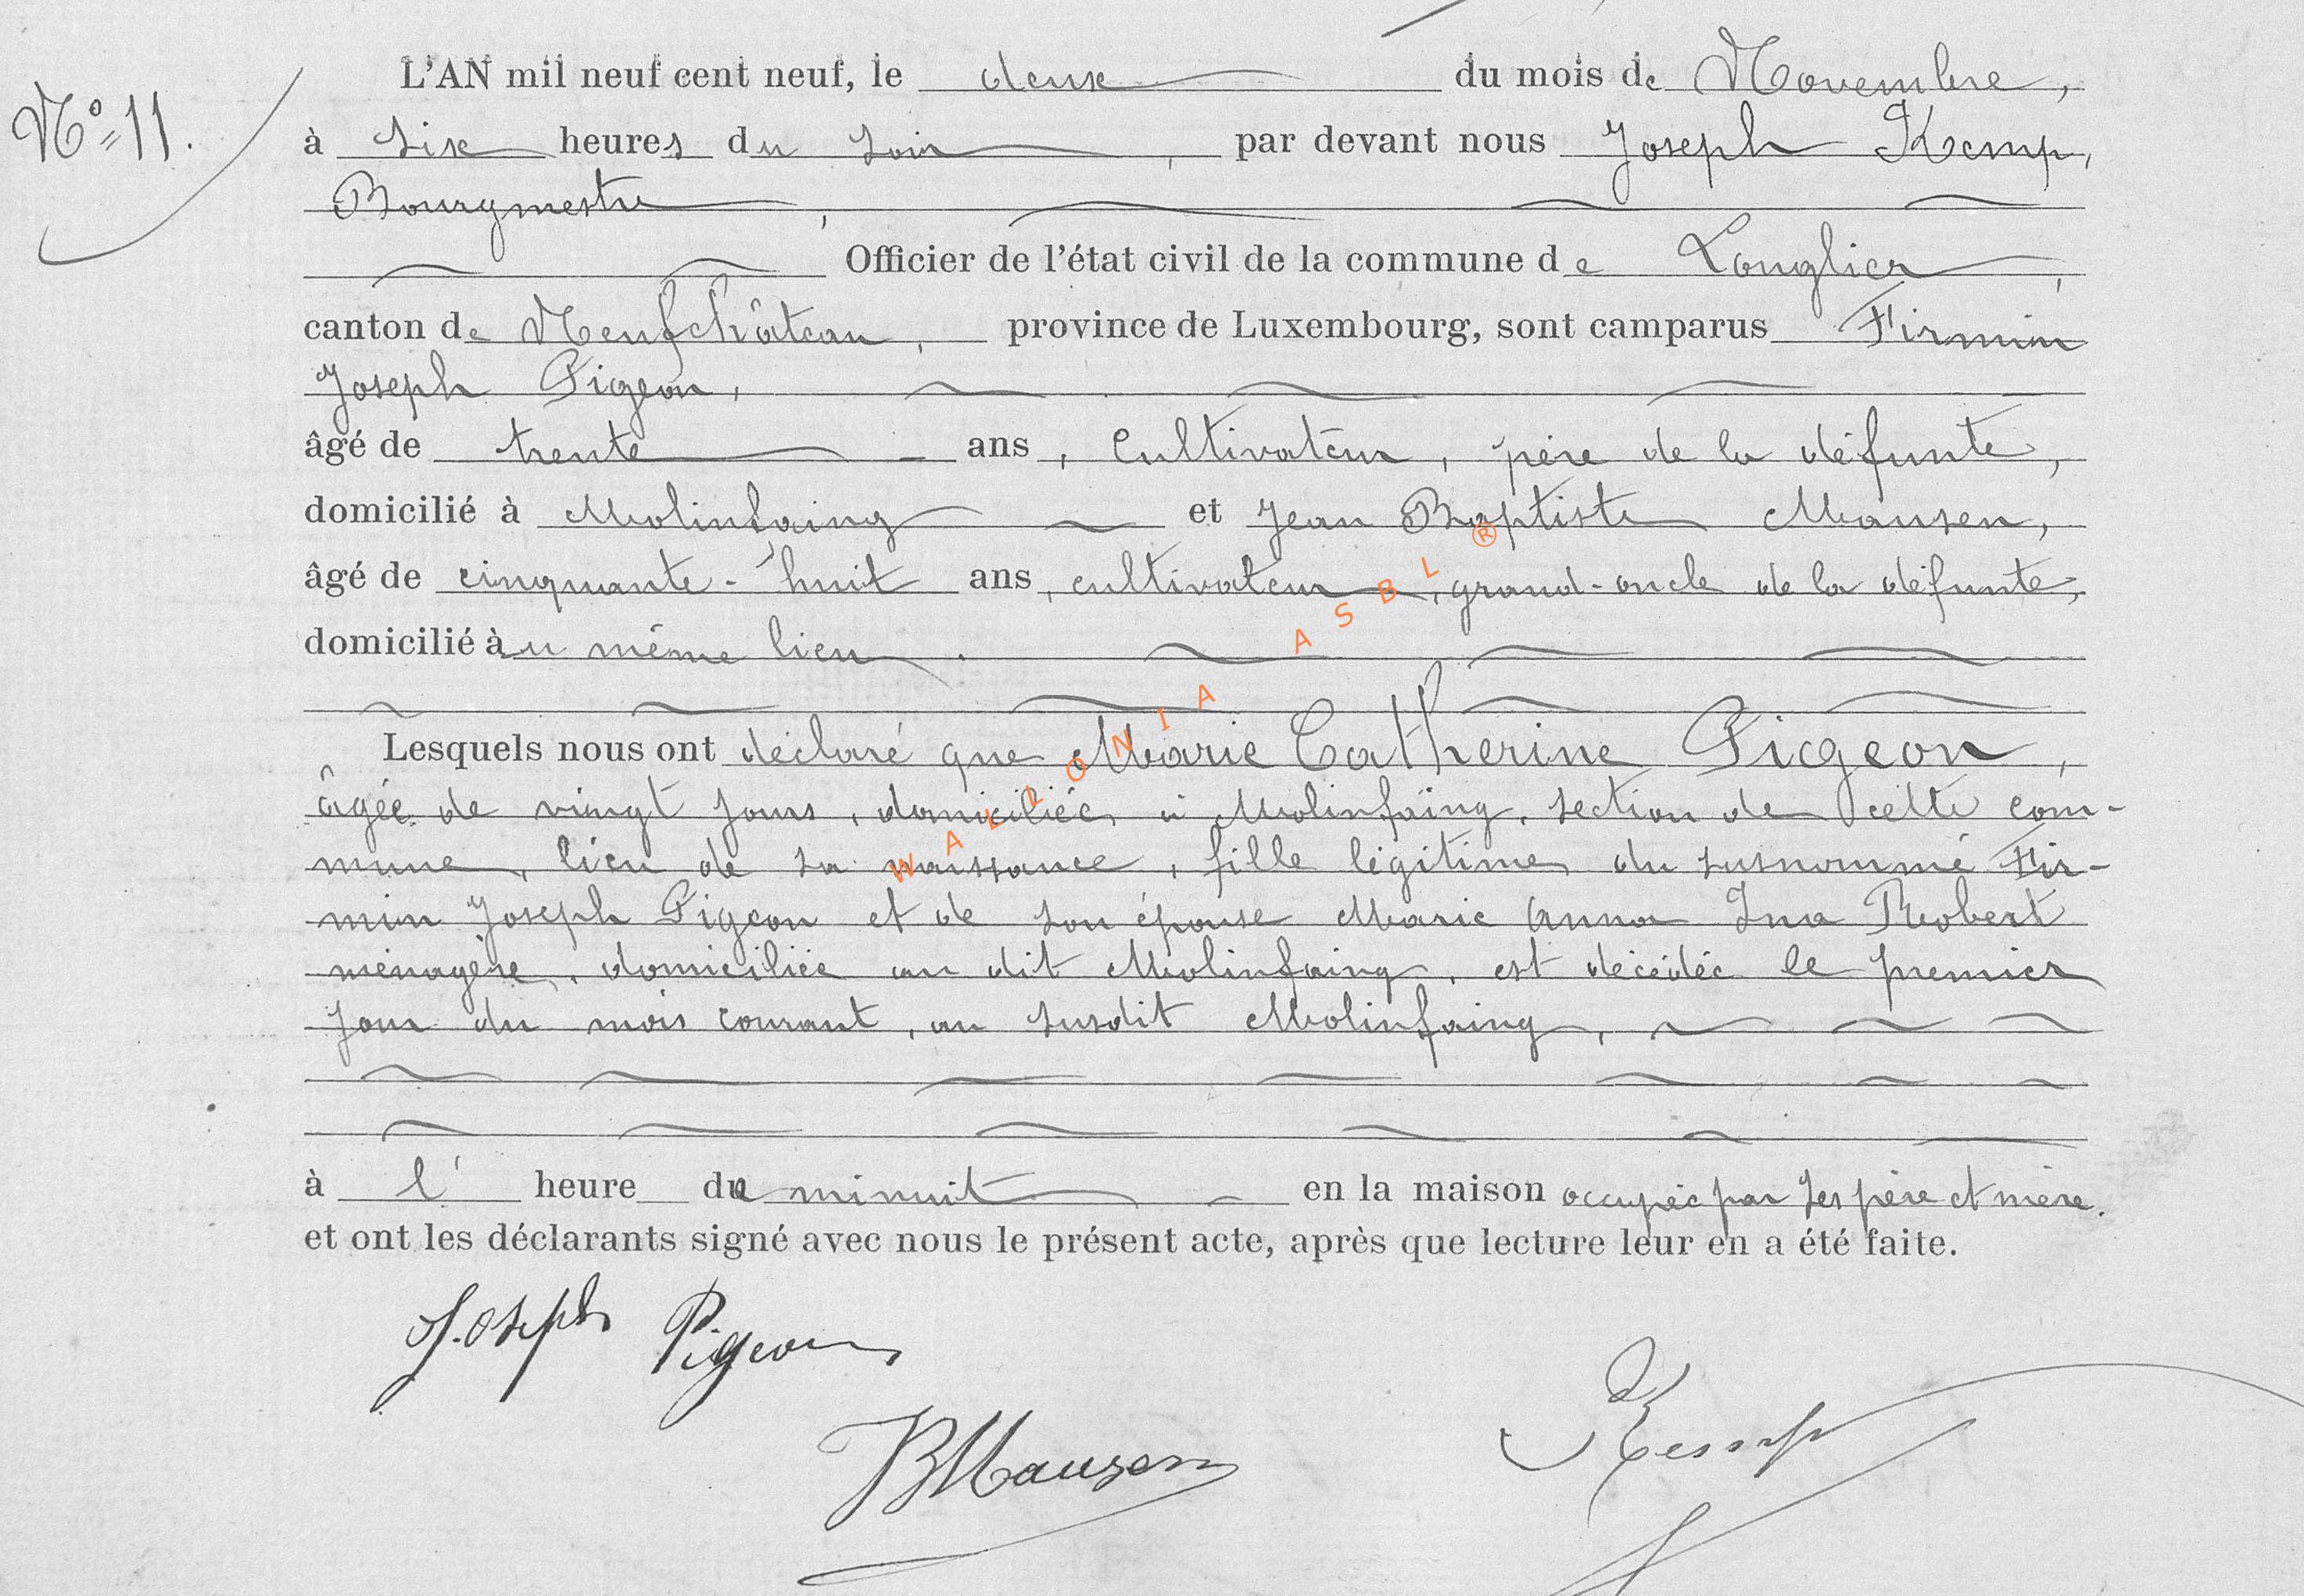 L'AN mil neuf cent neuf, le deux du mois de Novembre,
N° 11.
à six heures du soir, par devant nous Joseph Kemp,
Bourgmestre,
Officier de l'état civil de la commune de Longlier,
canton de Neufchâteau, province de Luxembourg, sont camparus Firmin
Joseph Pigeon,
âgé de trente ans, cultivateur, père de la défunte,
domicilié à Molinfaing et Jean Baptiste Mausen,
âgé de cinquante-huit ans, cultivateur, grand-oncle de la défunte,
domicilié au même lieu.
Lesquels nous ont déclaré que Marie Catherine Pigeon,
âgée de vingt jours, domiciliée à Molinfaing, section de cette com-
mune, lieu de sa naissance, fille légitime du susnommé Fir-
min Joseph Pigeon et de son épouse Marie Anna Ina Robert
ménagère, domiciliée au dit Molinfaing, est décédée le premier
jour du mois courant, au susdit Molinfaing,
à l' heure de minuit en la maison occupée par ses père et mère.
et ont les déclarants signé avec nous le présent acte, après que lecture leur en a été faite.
Joseph Pigeon
JBMausen
Kemp
WALLONIA ASBL ®